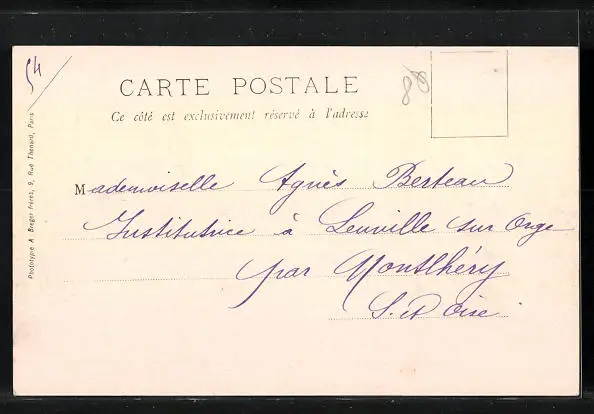 54
88
CARTE POSTALE
Ce côté est exclusivement réservé à l'adresse
Mademoiselle Agnès Berteau
Institutrice à Leuville sur Orge
par Montlhéry
S. et Oise
Phototypie A. Breger Frères, 9, Rue Thénard, Paris